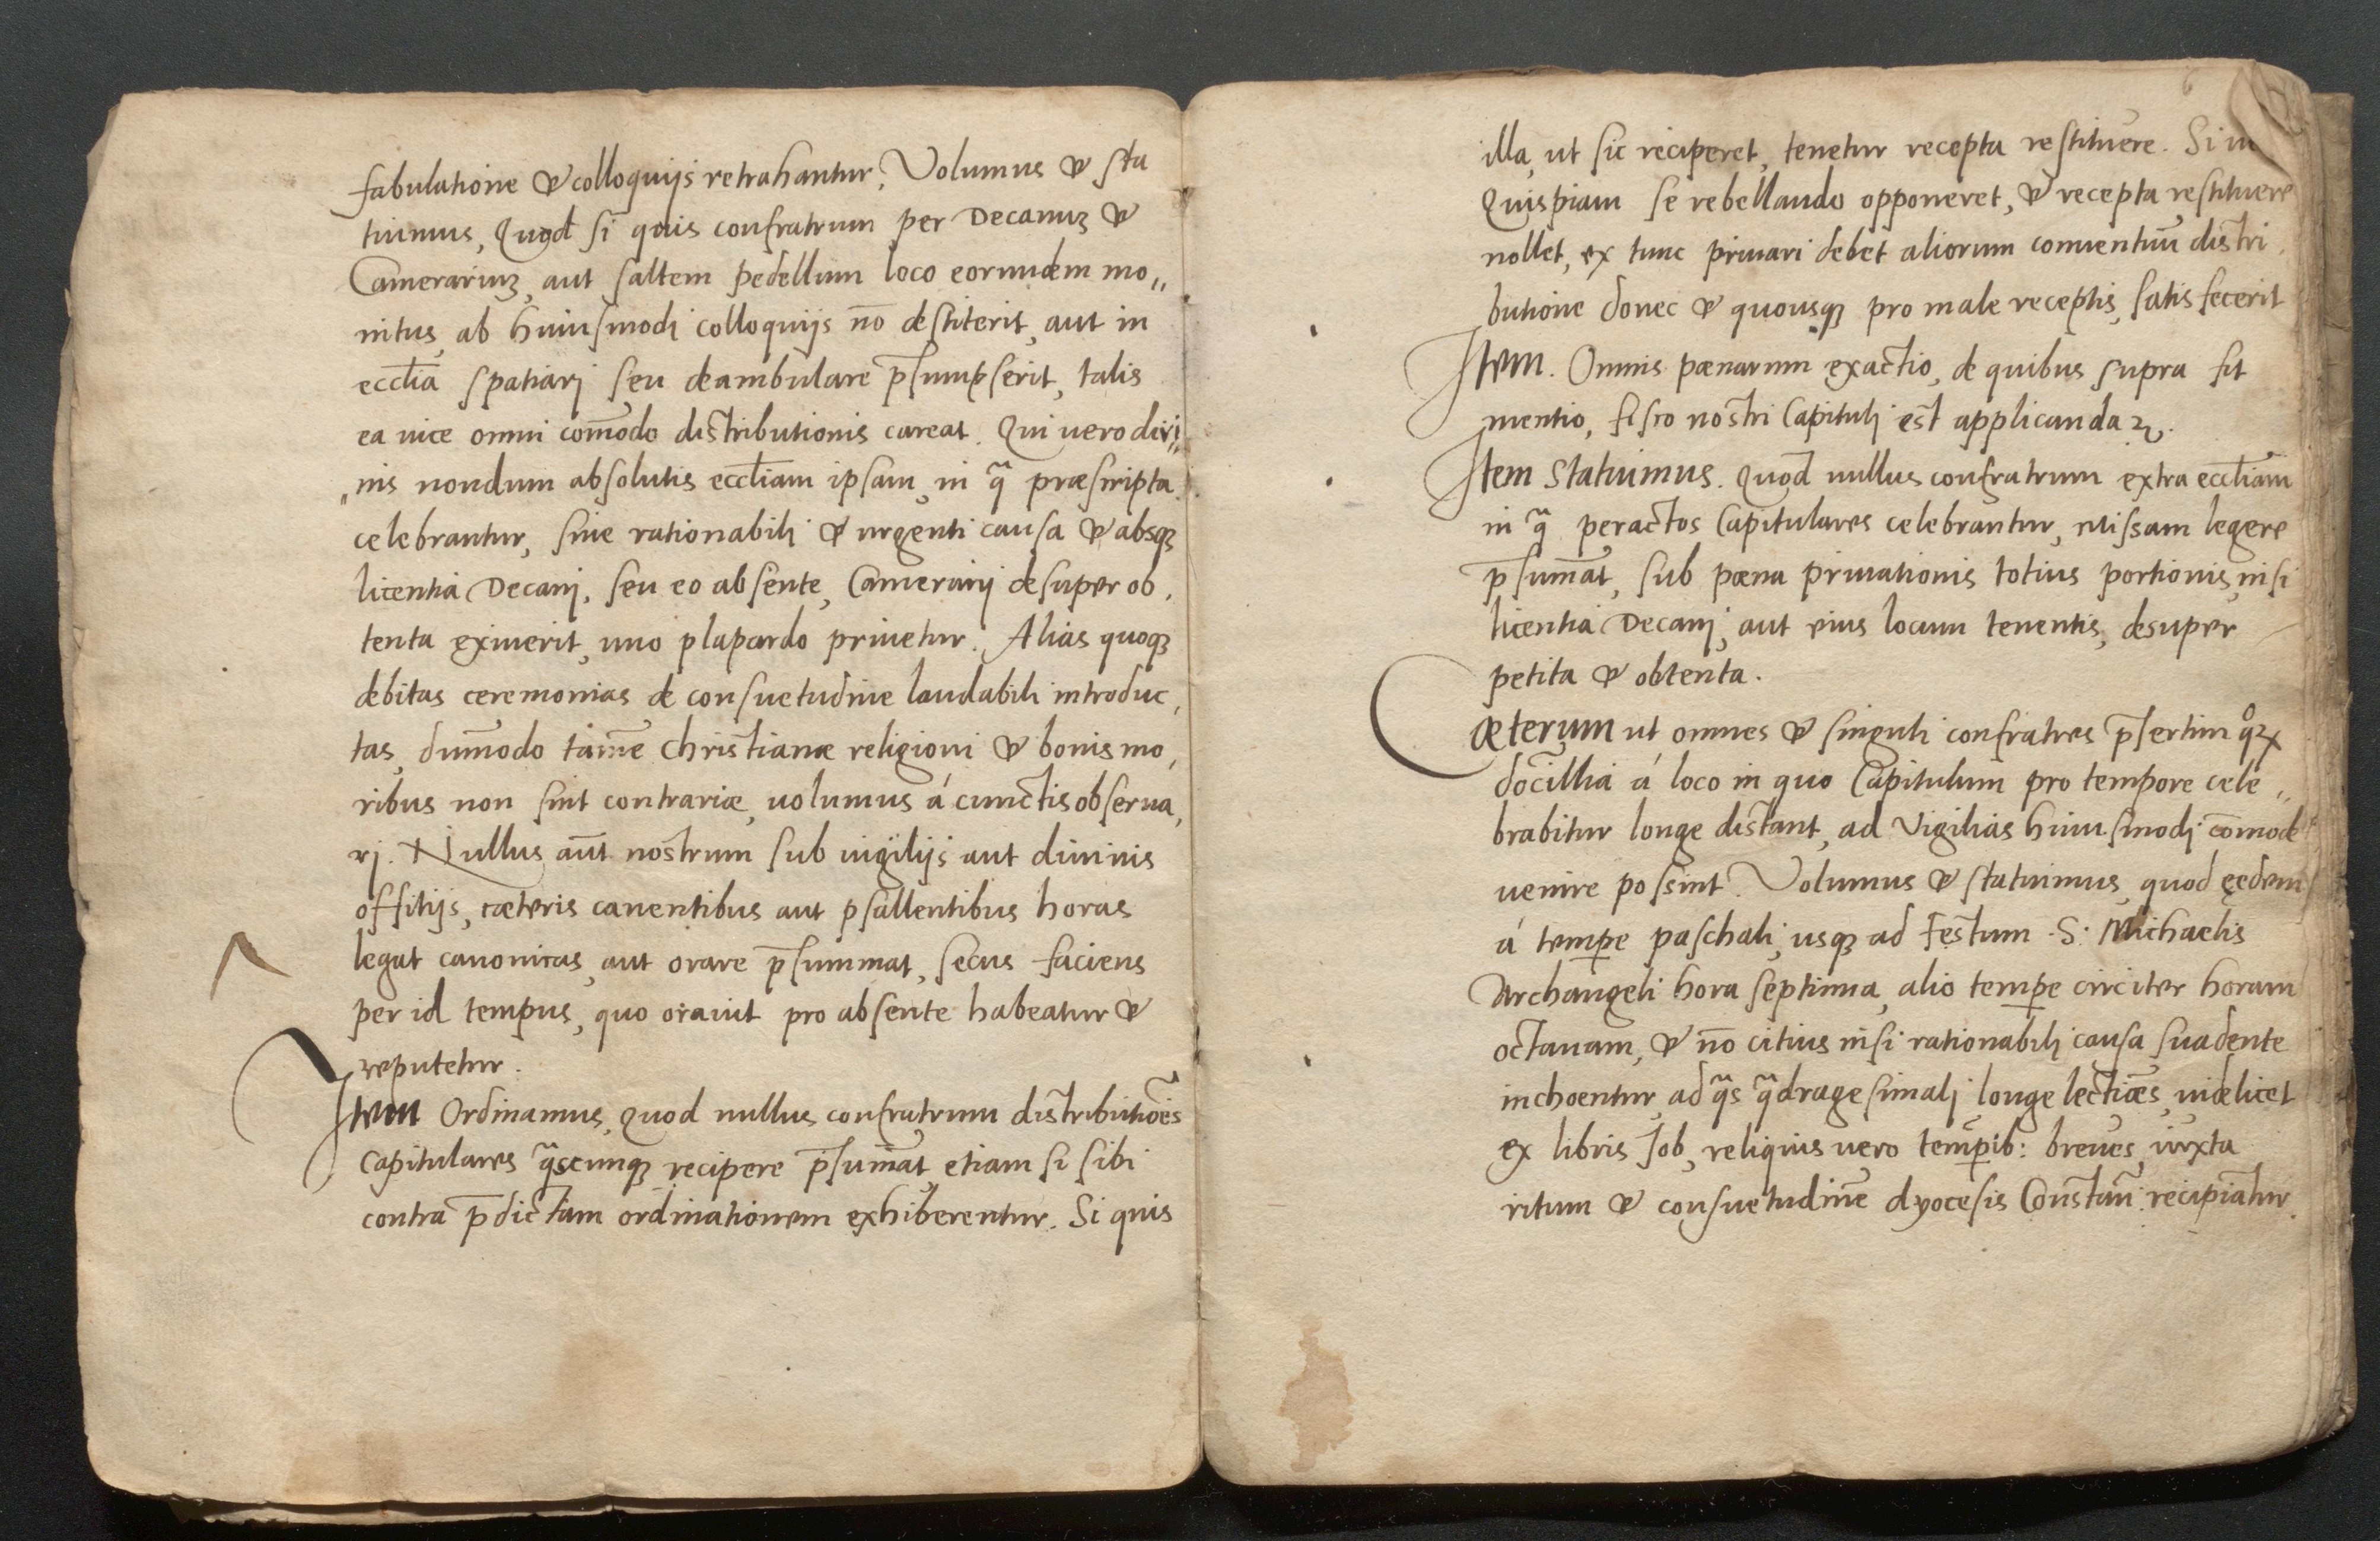 fabulatione & colloquijs retrahantur, Volumus & sta
tuimus, Quod si quis confratrum per Decanuʒ &
Camerariuʒ, aut saltem pedellum loco eorundem mo„
nitus, ab huiusmodj colloquijs nō destiterit, aut in
eccl̄ia spatiarj seu deambulare p̄sumpserit, talis
ea uice omni com̄odo distributionis careat. Qui uero divi„
„nis nondum absolutis eccl̄iam ipsam, in qᷓ præscripta
celebrantur, sine rationabilj & urgenti causa & absqʒ
licentia Decanj, seu eo absente, Camerarij desuper ob,
tenta exiuerit, uno plapardo priuetur. Alias quoqʒ
debitas ceremonias de consuetudine laudabili introduc,
tas, dum̄odo tamē Christianæ religioni & bonis mo,
ribus non sint contrariæ, uolumus á cunctis obserua,
rj. Nullus aūt nostrum sub uigilijs aut diuinis
offitijs, cæteris canentibus aut psallentibus horas
legat canonicas, aut orare p̄summat, secus faciens
per id tempus, quo orauit pro absente habeatur &
reputetur.
Item Ordinamus, Quod nullus confratrum distributiōes
Capitulares qᷓscunqʒ recipere p̄sum̄at, etiam si sibi
contra p̄dictam ordinationem exhiberentur. Si quis
6
illa, ut sic reciperet, tenetur recepta restituere. Si
Quispiam se rebellando opponeret, & recepta restituere
nollet, ex tunc priuari debet aliorum conuentuū distri,
butione donec & quousqʒ pro male receptis, satis fecerit
Item. Omnis pœnarum exactio, de quibus supra fit
mentio, fisco nostri Capitulj est applicanda.
Item Statuimus. Quod nullus confratrum extra eccl̄iam
in qᷓ peractos Capitulares celebrantur, Missam legere
p̄sum̄at, sub pœna priuationis totius portionis, nisi
licentia Decanj, aut eius locum tenentis, desuper
petita & obtenta.
Cæterum ut omnes & singuli confratres p̄sertim qͦꝝ
docillia á loco in quo Capitulum pro tempore cele„
brabitur longe distant, ad Vigilias huiusmodj com̄ode
uenire possint. Volumus & statuimus, quod eędem
á temꝑe paschalj, usqʒ ad Festum .S. Michaelis
Archangeli hora septima, alio temꝑe circiter horam
octauam, & nō citius nisi rationabilj causa suadente
inchoentur, ad qᷓs qᷓdragesimalj longe lectiōes, uidelicet
ex libris Job, reliquis uero temꝑib: breues, iuxta
ritum & consuetudinē dyocesis Constan̄. recipiātur.